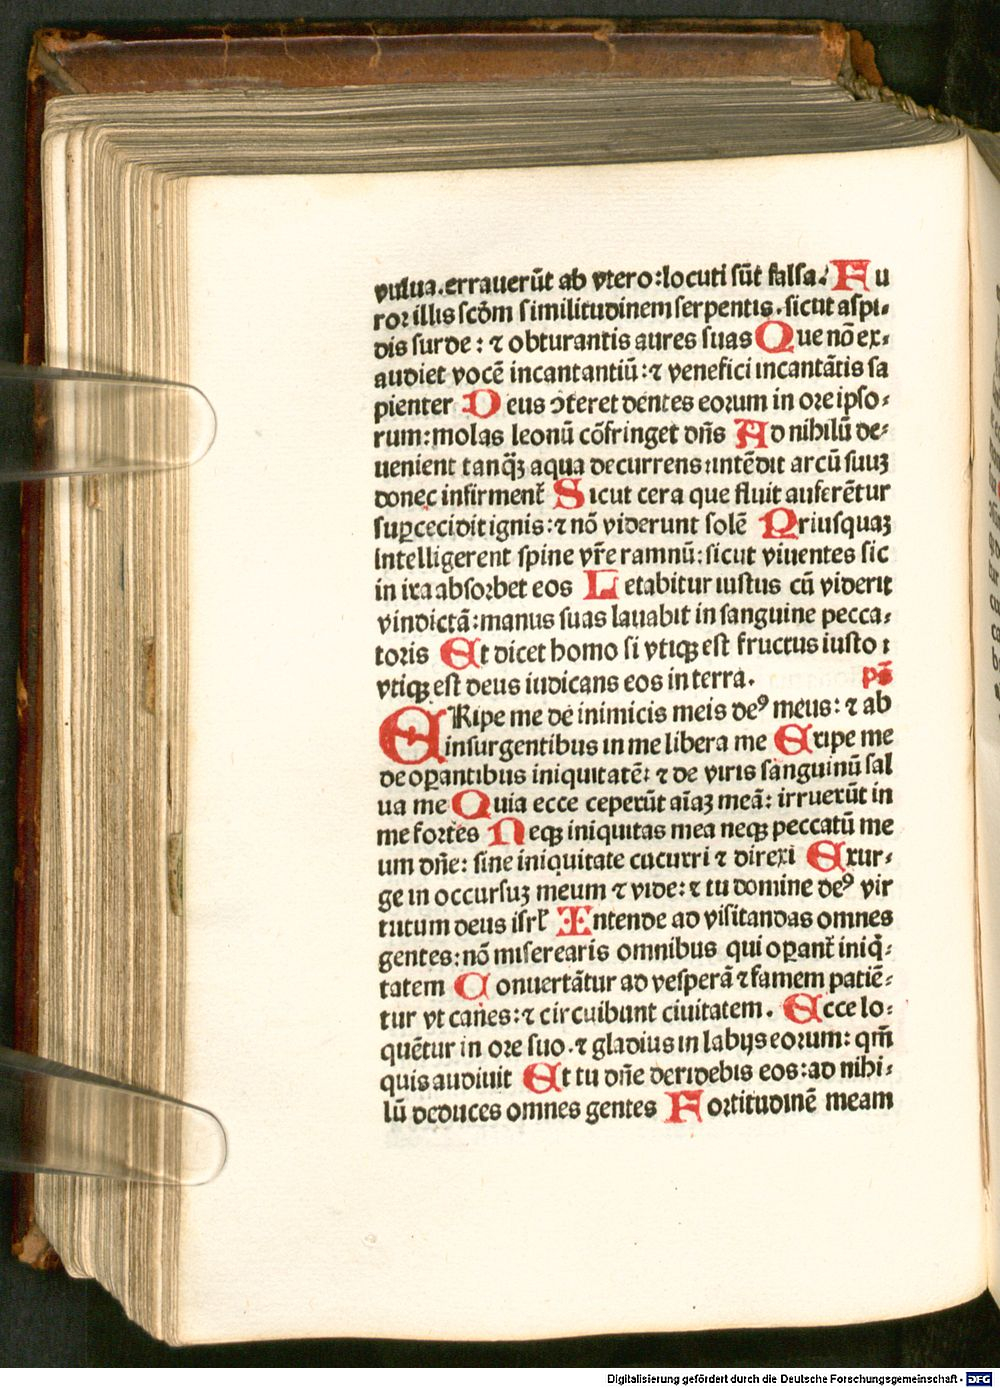 vulua.erraueru̅t ab vtero:locuti su̅t falsa. Fu
ror illis scd̅m similitudinem serpentis.sicut aspi-
dis surde: ⁊ obturantis aures suas Que no̅ ex-
audiet voce̅ incantantiu̅:⁊ venefici incanta̅tis sa
pienter Deus ↄ̅teret dentes eorum in ore ipso-
rum:molas leonu̅ co̅fringet dn̅s Ad nihilu̅ de-
uenient tanq̅ꝫ aqua decurrens:inte̅dit arcu̅ suuꝫ
donec infirment᷑ Sicut cera que fluit aufere̅tur
suꝑcecidit ignis:⁊ no̅ viderunt sole̅ Priusquaꝫ
intelligerent spine vr̅e ramnu̅:sicut viuentes sic
in ira absorbet eos Letabitur iustus cu̅ viderit
vindicta̅:manus suas lauabit in sanguine pecca-
toris Et dicet homo si vtiqꝫ est fructus iusto:
vtiqꝫ est deus iudicans eos in terra. ps̅
ERipe me de inimicis meis deꝰ meus: ⁊ ab
insurgentibus in me libera me Eripe me
de oꝑantibus iniquitate̅: ⁊ de viris sanguinu̅ sal
ua me Quia ecce ceperu̅t ai̅aꝫ mea̅: irrueru̅t in
me fortes Neqꝫ iniquitas mea neqꝫ peccatu̅ me
um dn̅e: sine iniquitate cucurri ⁊ direxi Exur-
ge in occursuꝫ meum ⁊ vide:⁊ tu domine deꝰ vir
tutum deus isrl̅ Intende ad visitandas omnes
gentes:no̅ miserearis omnibus qui oꝑant᷑ iniq̅-
tatem Conuerta̅tur ad vespera̅ ⁊ famem patie̅-
tur vt canes:⁊ circuibunt ciuitatem. Ecce lo-
que̅tur in ore suo.⁊ gladius in labijs eorum: qm̅
quis audiuit Et tu dn̅e deridebis eos:ad nihi-
lu̅ deduces omnes gentes Fortitudine̅ meam
Digitalisierung gefördert durch die Deutsche Forschungsgemeinschaft - DFG